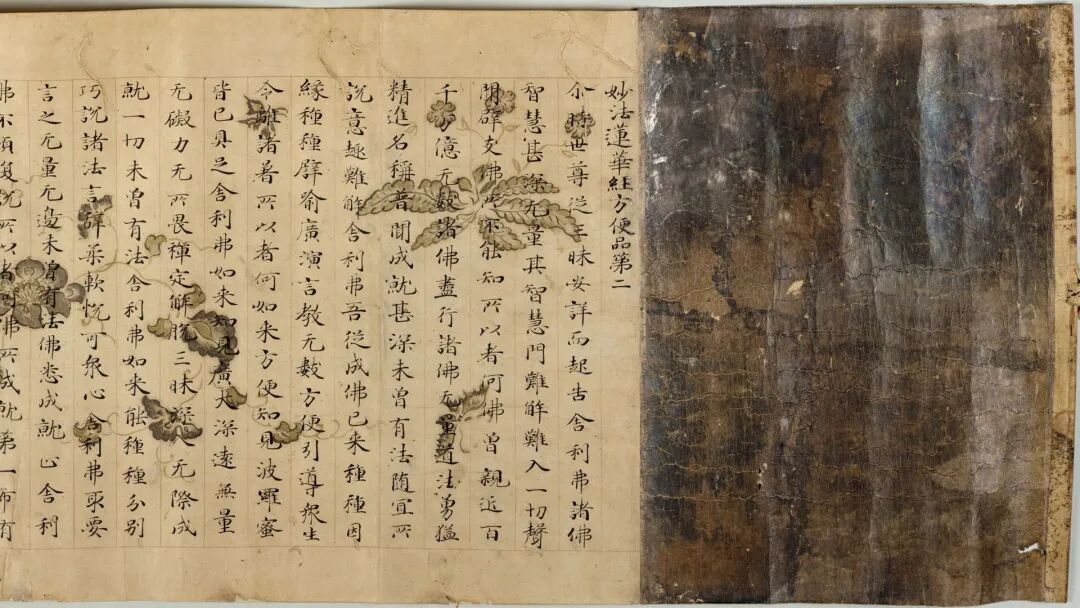 妙法蓮華經方便品第二
尒時世尊從三昧安詳而起告舍利弗諸佛
智慧甚深无量其智慧門難解難入一切聲
聞辟支佛所不能知所以者何佛曾親近百
千万億无數諸佛盡行諸佛无量道法勇猛
精進名稱普聞成就甚深未曾有法随宜所
説意趣難解舍利弗吾從成佛已来種種因
緣種種譬喻廣演言教无數方便引導衆生
令離諸著所以者何如来方便知見波羅蜜
皆已具足舍利弗如来知見廣大深遠無量
无礙力无所畏禪定解脱三昧深入无際成
就一切未曾有法舍利弗如来能種種分別
巧説諸法言辭柔軟悅可衆心舍利弗取要
言之无量无邊未曾有法佛悉成就止舍利
弗不須復説所以者何佛所成就第一希有